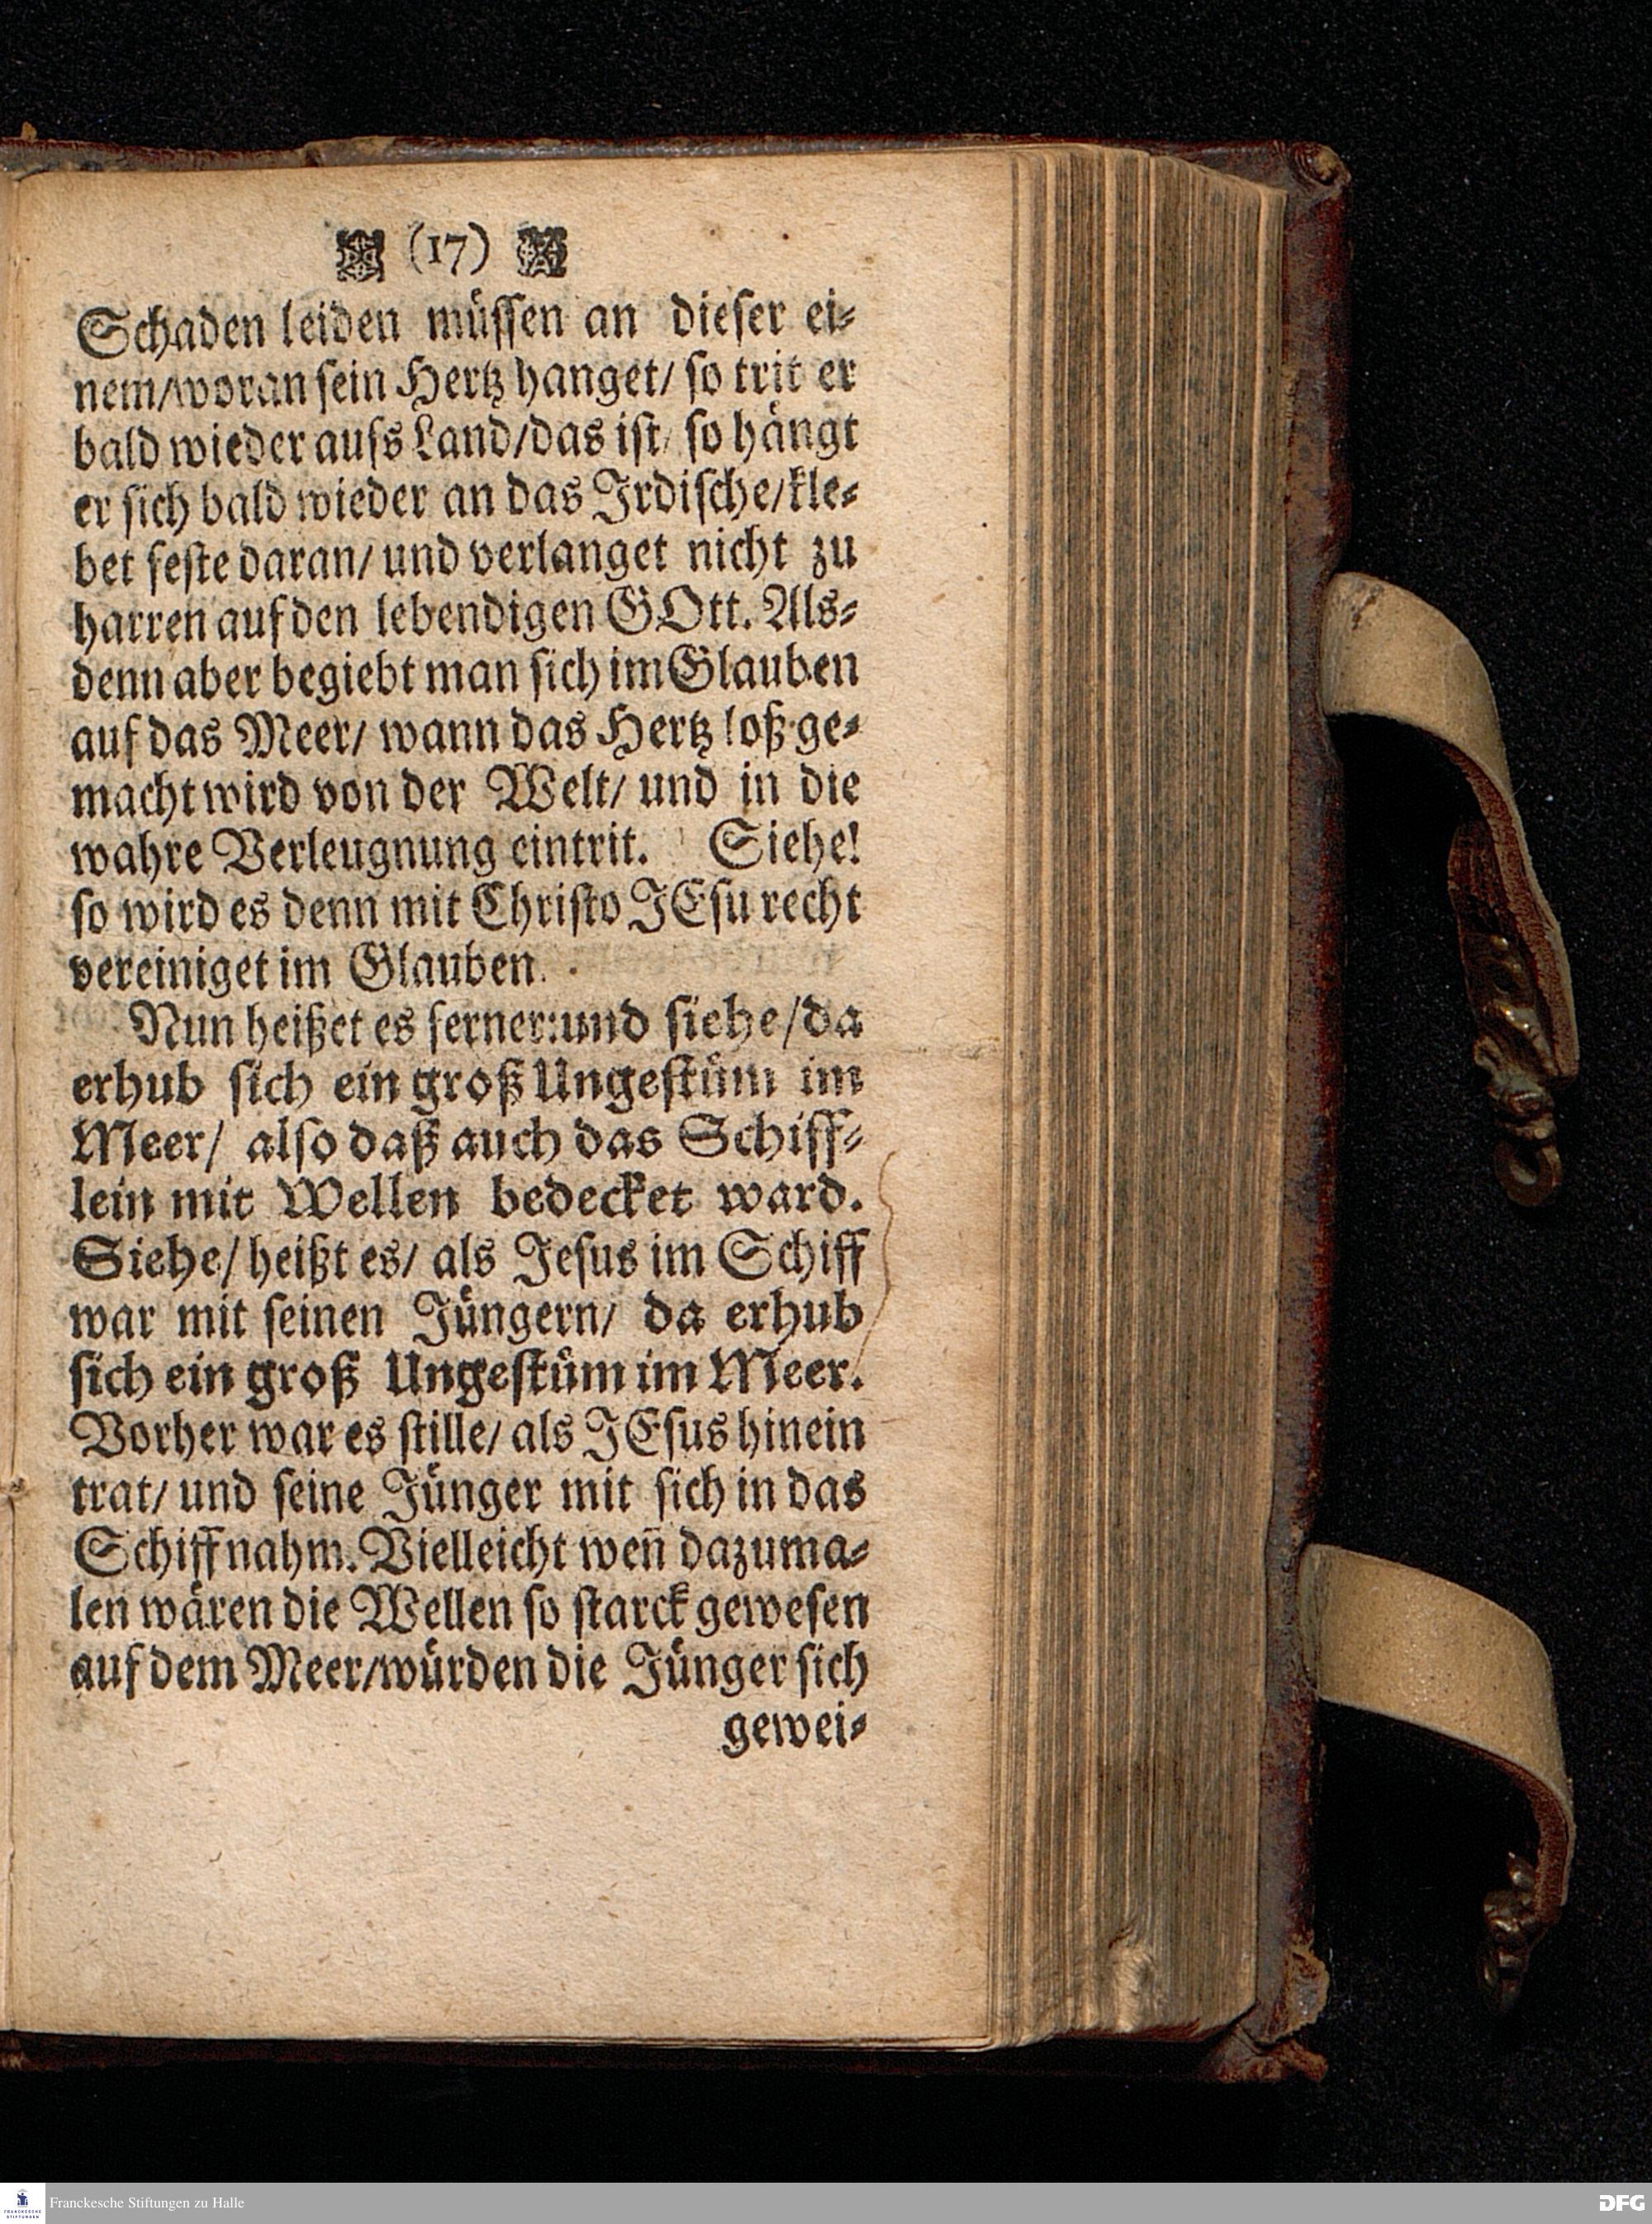 (17)
Schaden leiden müssen an dieser ei⸗
nem/woran sein Hertz hanget/ so trit er
bald wieder aufs Land/das ist/ so hängt
er sich bald wieder an das Irdische/kle⸗
bet feste daran/ und verlanget nicht zu
harren auf den lebendigen GOtt. Als⸗
denn aber begiebt man sich im Glauben
auf das Meer/ wann das Hertz loß-ge⸗
macht wird von der Welt/ und in die
wahre Verleugnung eintrit. Siehe!
so wird es denn mit Christo JEsu recht
vereiniget im Glauben.
Nun heißet es ferner: und siehe/da
erhub sich ein groß Ungestüm im
Meer/ also daß auch das Schiff⸗
lein mit Wellen bedecket ward.
Siehe/ heißt es/ als Jesus im Schiff
war mit seinen Jüngern/ da erhub
sich ein groß Ungestüm im Meer.
Vorher war es stille/ als JEsus hinein
trat/ und seine Jünger mit sich in das
Schiff nahm. Vielleicht weñ dazuma⸗
len wären die Wellen so starck gewesen
auf dem Meer/würden die Jünger sich
gewei⸗
Franckesche Stiftungen zu Halle
DFG